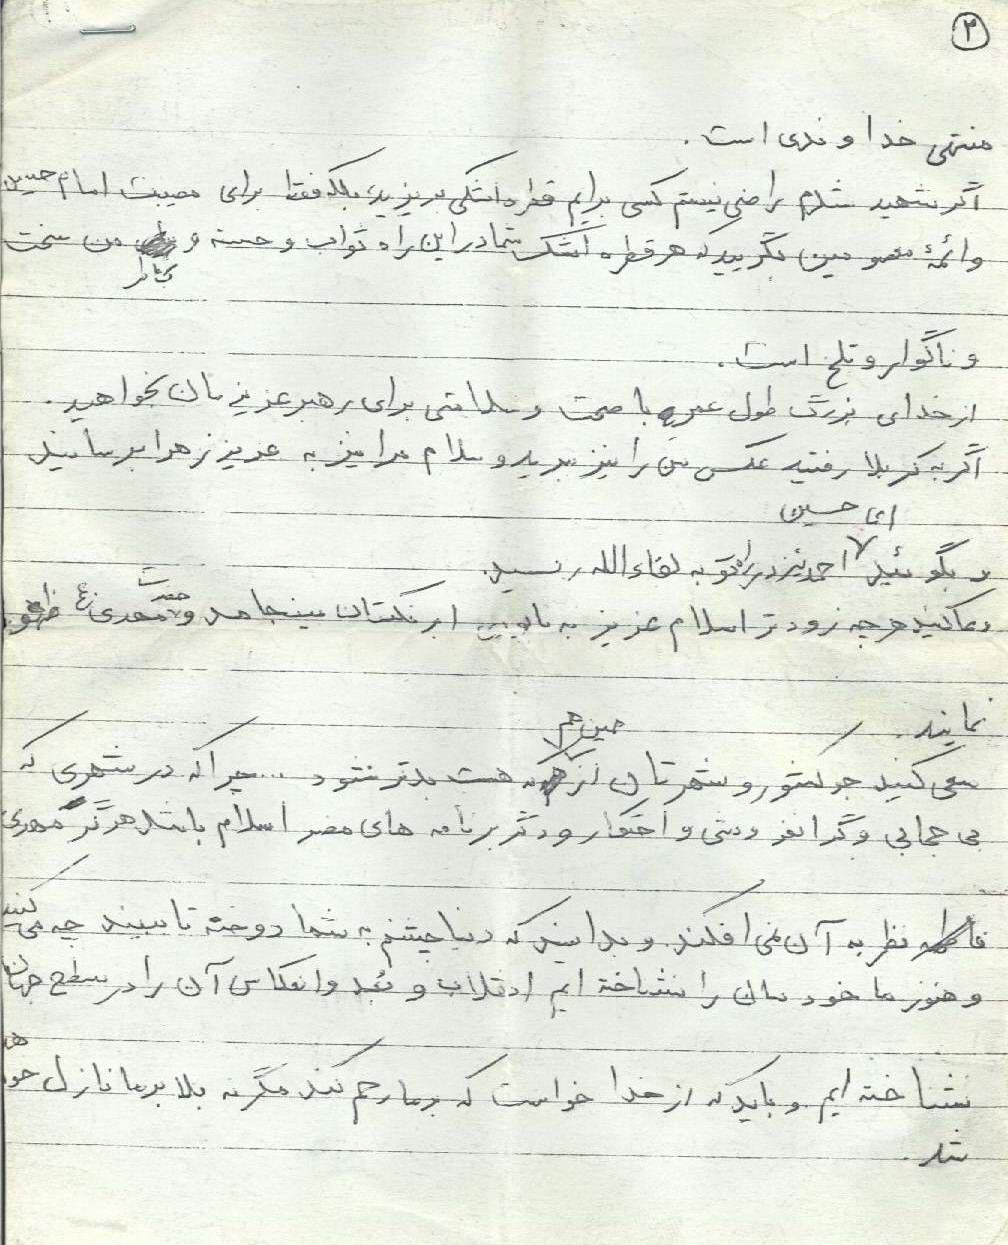 ۲
منتهی خداوندی است.
اگر شهید شدم راضی نیستم کسی برایم قطره اشکی بریزید، بلکه فقط برای مصیبت امام حسین
وائمهٔ معصومین بگریید که هر قطره اشک شما در این راه ثواب و حسنه و بخاطر من سخت
و ناگوار و تلخ است.
از خدای بزرگ طول عمر با صحت و سلامتی برای رهبر عزیزمان بخواهید.
اگر به کربلا رفتید عکس من را نیز ببرید و سلام مرا نیز به عزیز زهرا برسانید
و بگوئید ای حسین احمد نیز در راه تو به لقاءالله رسید.
دعا کنید هرچه زودتر اسلام عزیز به ابرنگستان بینجامد و حضرت مهدی (ع) ظهور
نمایند.
سعی کنید جو کشور و شهرتان از همین هم که هست بدتر نشود ... چرا که در شهری که
بی حجابی و گرانفروشی و احتکار و دیگر برنامه های مضر اسلام باشد هرگز مهدی
فاطمه نظر به آن نمی افکند و بدانید که دنیا چشم به شما دوخته تا ببیند چه می کنید
و هنوز ما خودمان را نشناخته ایم انقلاب و بُعد وانعکاس آن را در سطح جهان
نشناخته ایم و باید که از خدا خواست که بر ما رحم کند مگرنه بلا بر ما نازل خواهد
شد.